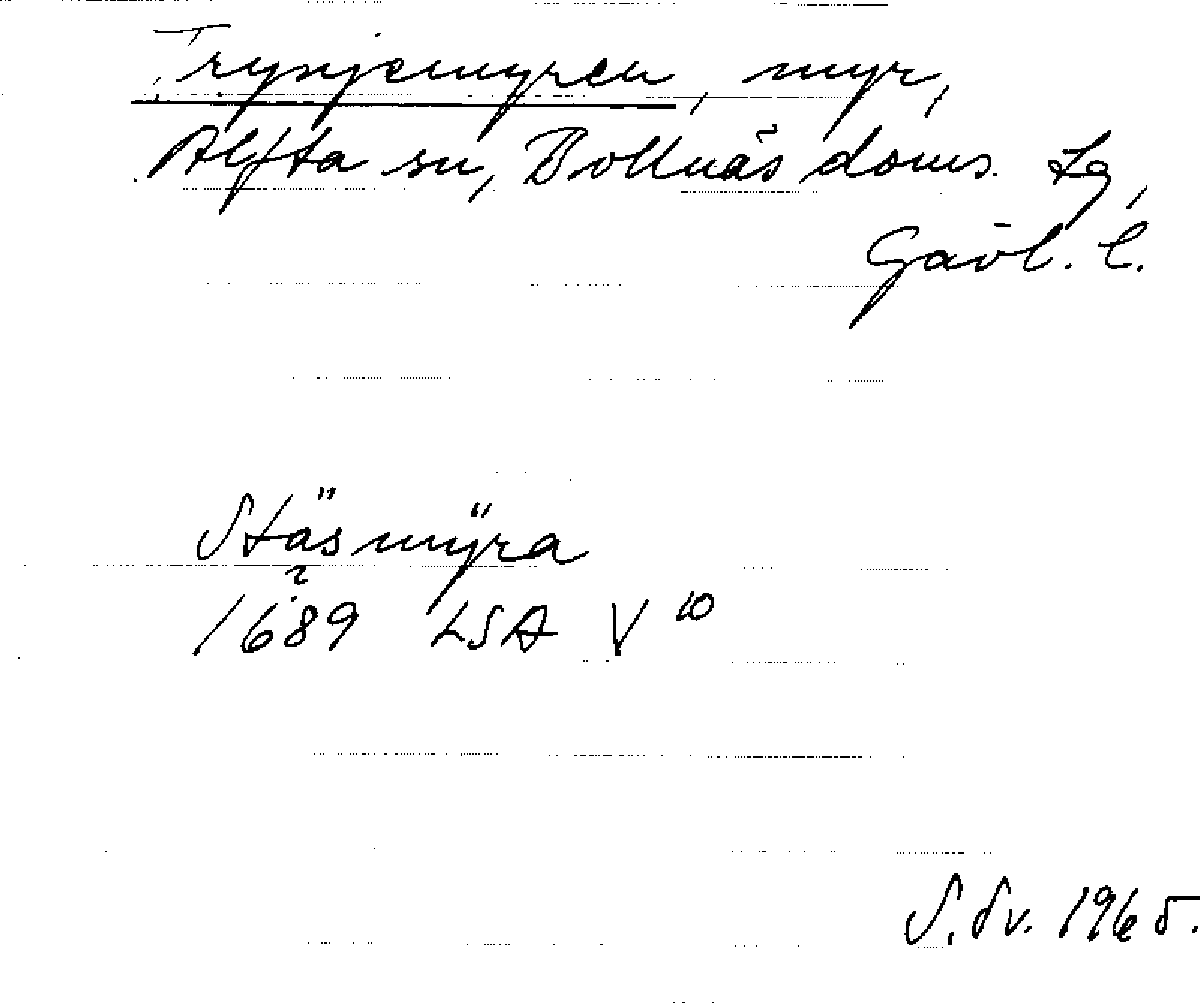 Trynjemyren, myr,
Alfta sn, Bollnäs doms. Lg,
Gävl. l.
Stäsmÿra
?
1689 LSA V 10
S. Sv. 1965.